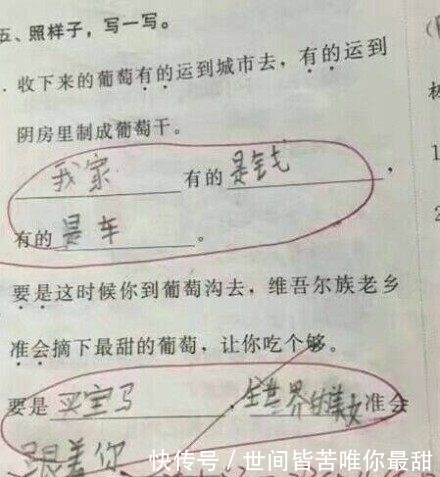 五、照样子，写一写。
. 收下来的葡萄有的运到城市去，有的运到
阴房里制成葡萄干。
我家有的是钱，
有的是车。
要是这时候你到葡萄沟去，维吾尔族老乡
准会摘下最甜的葡萄，让你吃个够。
要是买宝马，全世界的美女准会
跟着你
快传号 / 世间皆苦唯你最甜